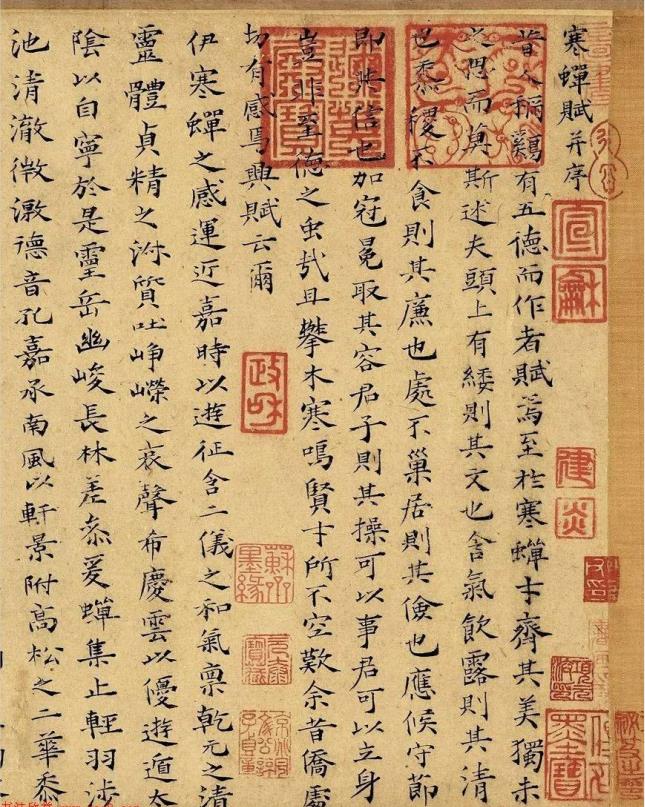 寒蟬賦 并序
昔人稱鷄有五德而作者賦焉至於寒蟬才齊其美獨未
之思而莫斯述夫頭上有緌則其文也含氣飲露則其清
也黍稷不食則其廉也處不巢居則其儉也應候守節
即其信也加冠冕取其容君子則其操可以事君可以立身
豈非至德之虫哉且攀木寒鳴賢才所不空歎余昔僑處
切有感焉興賦云爾
伊寒蟬之感運近嘉時以遊征含二儀之和氣稟乾元之清
靈體貞精之淋質吐崢嶸之哀聲布慶雲以優遊遁太
陰以自寧於是靈岳幽峻長林差忝爰蟬集止輕羽涉
池清澈微激德音孔嘉承南風以軒景附高松之二華黍
宣龢
建炎
政和